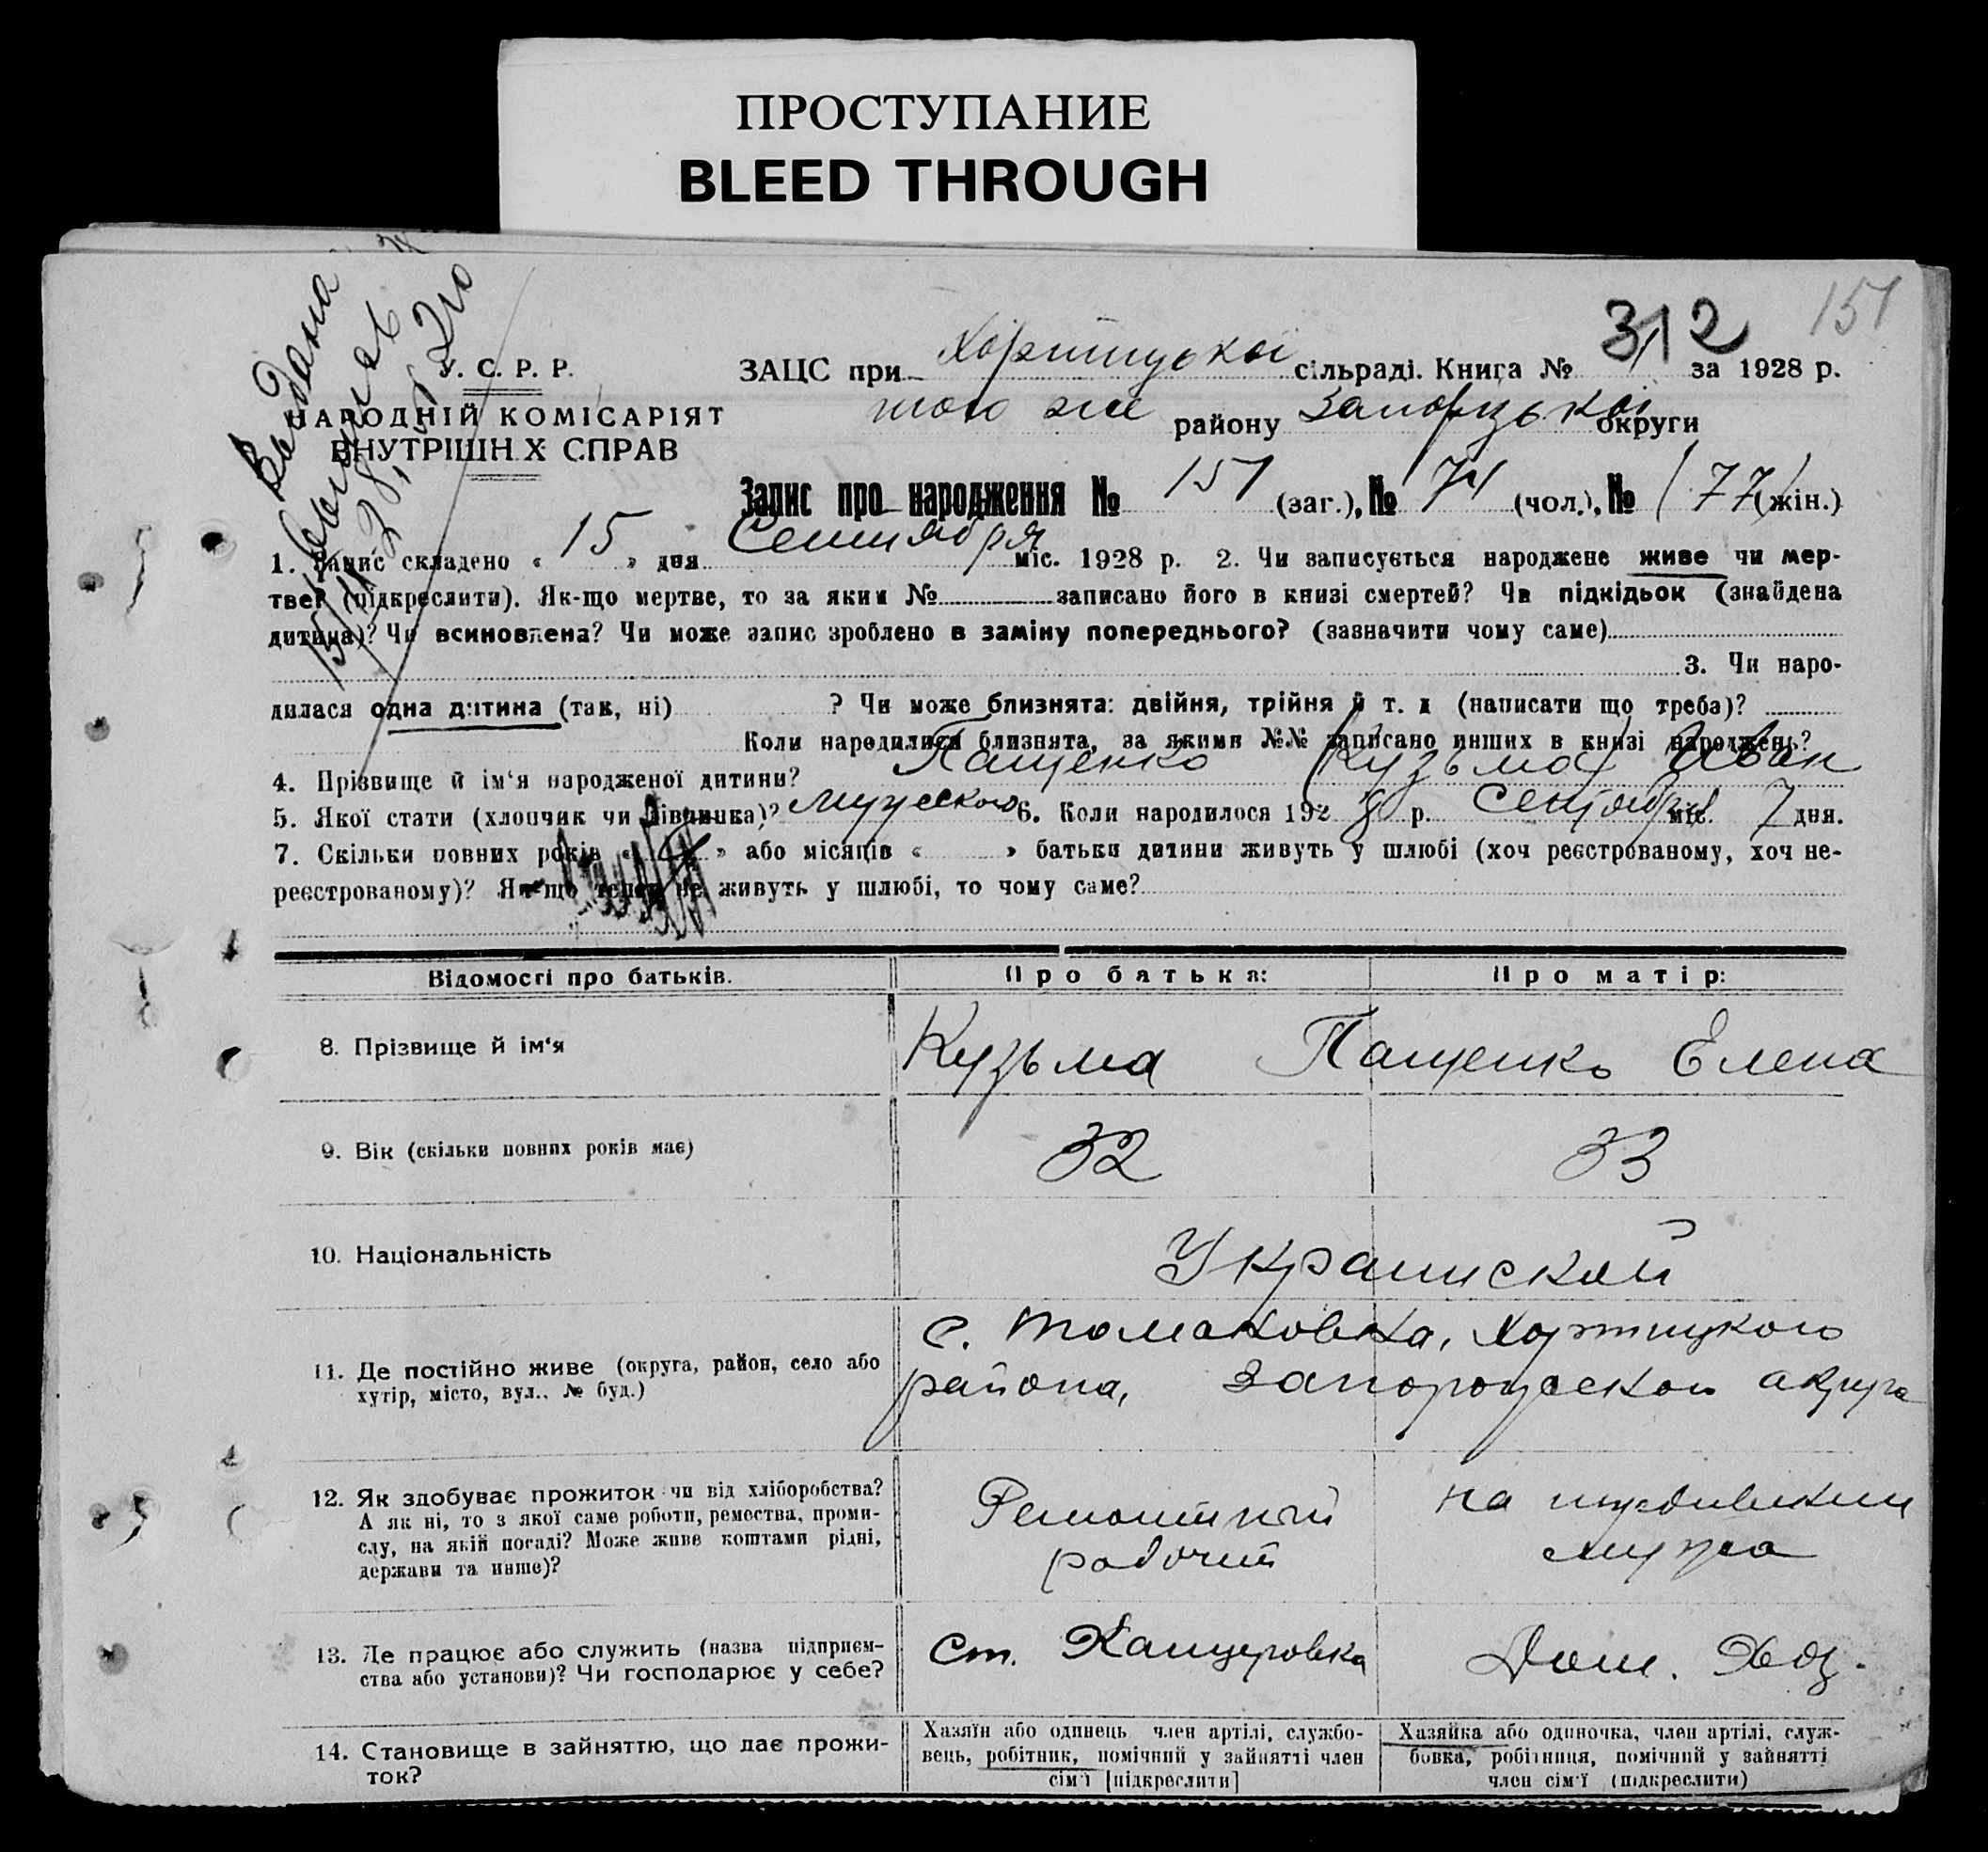 ПРОСТУПАНИЕ
BLEED THROUGH
151
312
Видана
У. С. Р. Р.
НАРОДНІЙ КОМІСАРІЯТ
ВНУТРІШН Х СПРАВ
ЗАЦС при Хортицькоі сільраді. Книга № за 1928 р.
того же району Запорізькоі округи
Запис про народження № 151 (заг.), № 74 (чол.), № 77 (жін.)
1. Запис складено « 15 » дня Сентября міс. 1928 р. 2. Чи записується народжене живе чи мер-
тве (підкреслити). Як-що мертве, то за яким № записано його в книзі смертей? Чи підкідьок (знайдена
дитина)? Чи всиновлена? Чи може запис зроблено в заміну попереднього? (зазначити чому саме)
3. Чи наро-
дилася одна дитина (так, ні) ? Чи може близнята: двійня, трійня й т. д (написати що треба)?
Коли народилися близнята, за якими №№ записано инших в книзі народжень?
4. Прізвище й ім‘я народженої дитини? Пащенко Кузьмы Иван
5. Якої стати (хлопчик чи дівчинка)? мужеского 6. Коли народилося 1928 р. Сентября міс. 7 дня.
7. Скільки повних років « » або місяців « » батьки дитини живуть у шлюбі (хоч реєстрованому, хоч не-
реєстрованому)? Як-що тепер не живуть у шлюбі, то чому саме?
Відомості про батьків. Про батька: Про матір:
8. Прізвище й ім‘я Кузьма Пащенко Елена
9. Вік (скільки повних років має) 32 33
10. Національність Украинской
11. Де постійно живе (округа, район, село або
хутір, місто, вул., № буд.)
с. Томаковка, Хортицкого
района, Запорожской округа
12. Як здобуває прожиток чи від хліборобства?
А як ні, то з якої саме роботи, ремества, проми-
слу, на якій посаді? Може живе коштами рідні,
держави та инше)?
Ремонтный
рабочий
на иждивении
мужа
13. Де працює або служить (назва підприєм-
ства або установи)? Чи господарює у себе?
Ст. Канцеровка
Дом. Хоз.
14. Становище в зайняттю, що дає прожи-
ток?
Хазяїн або одинець член артілі, службо-
вець, робітник, помічний у зайнятті член
сім‘ї [підкреслити]
Хазяйка або одиночка, член артілі, служ-
бовка, робітниця, помічний у зайнятті
член сім‘ї (підкреслити)